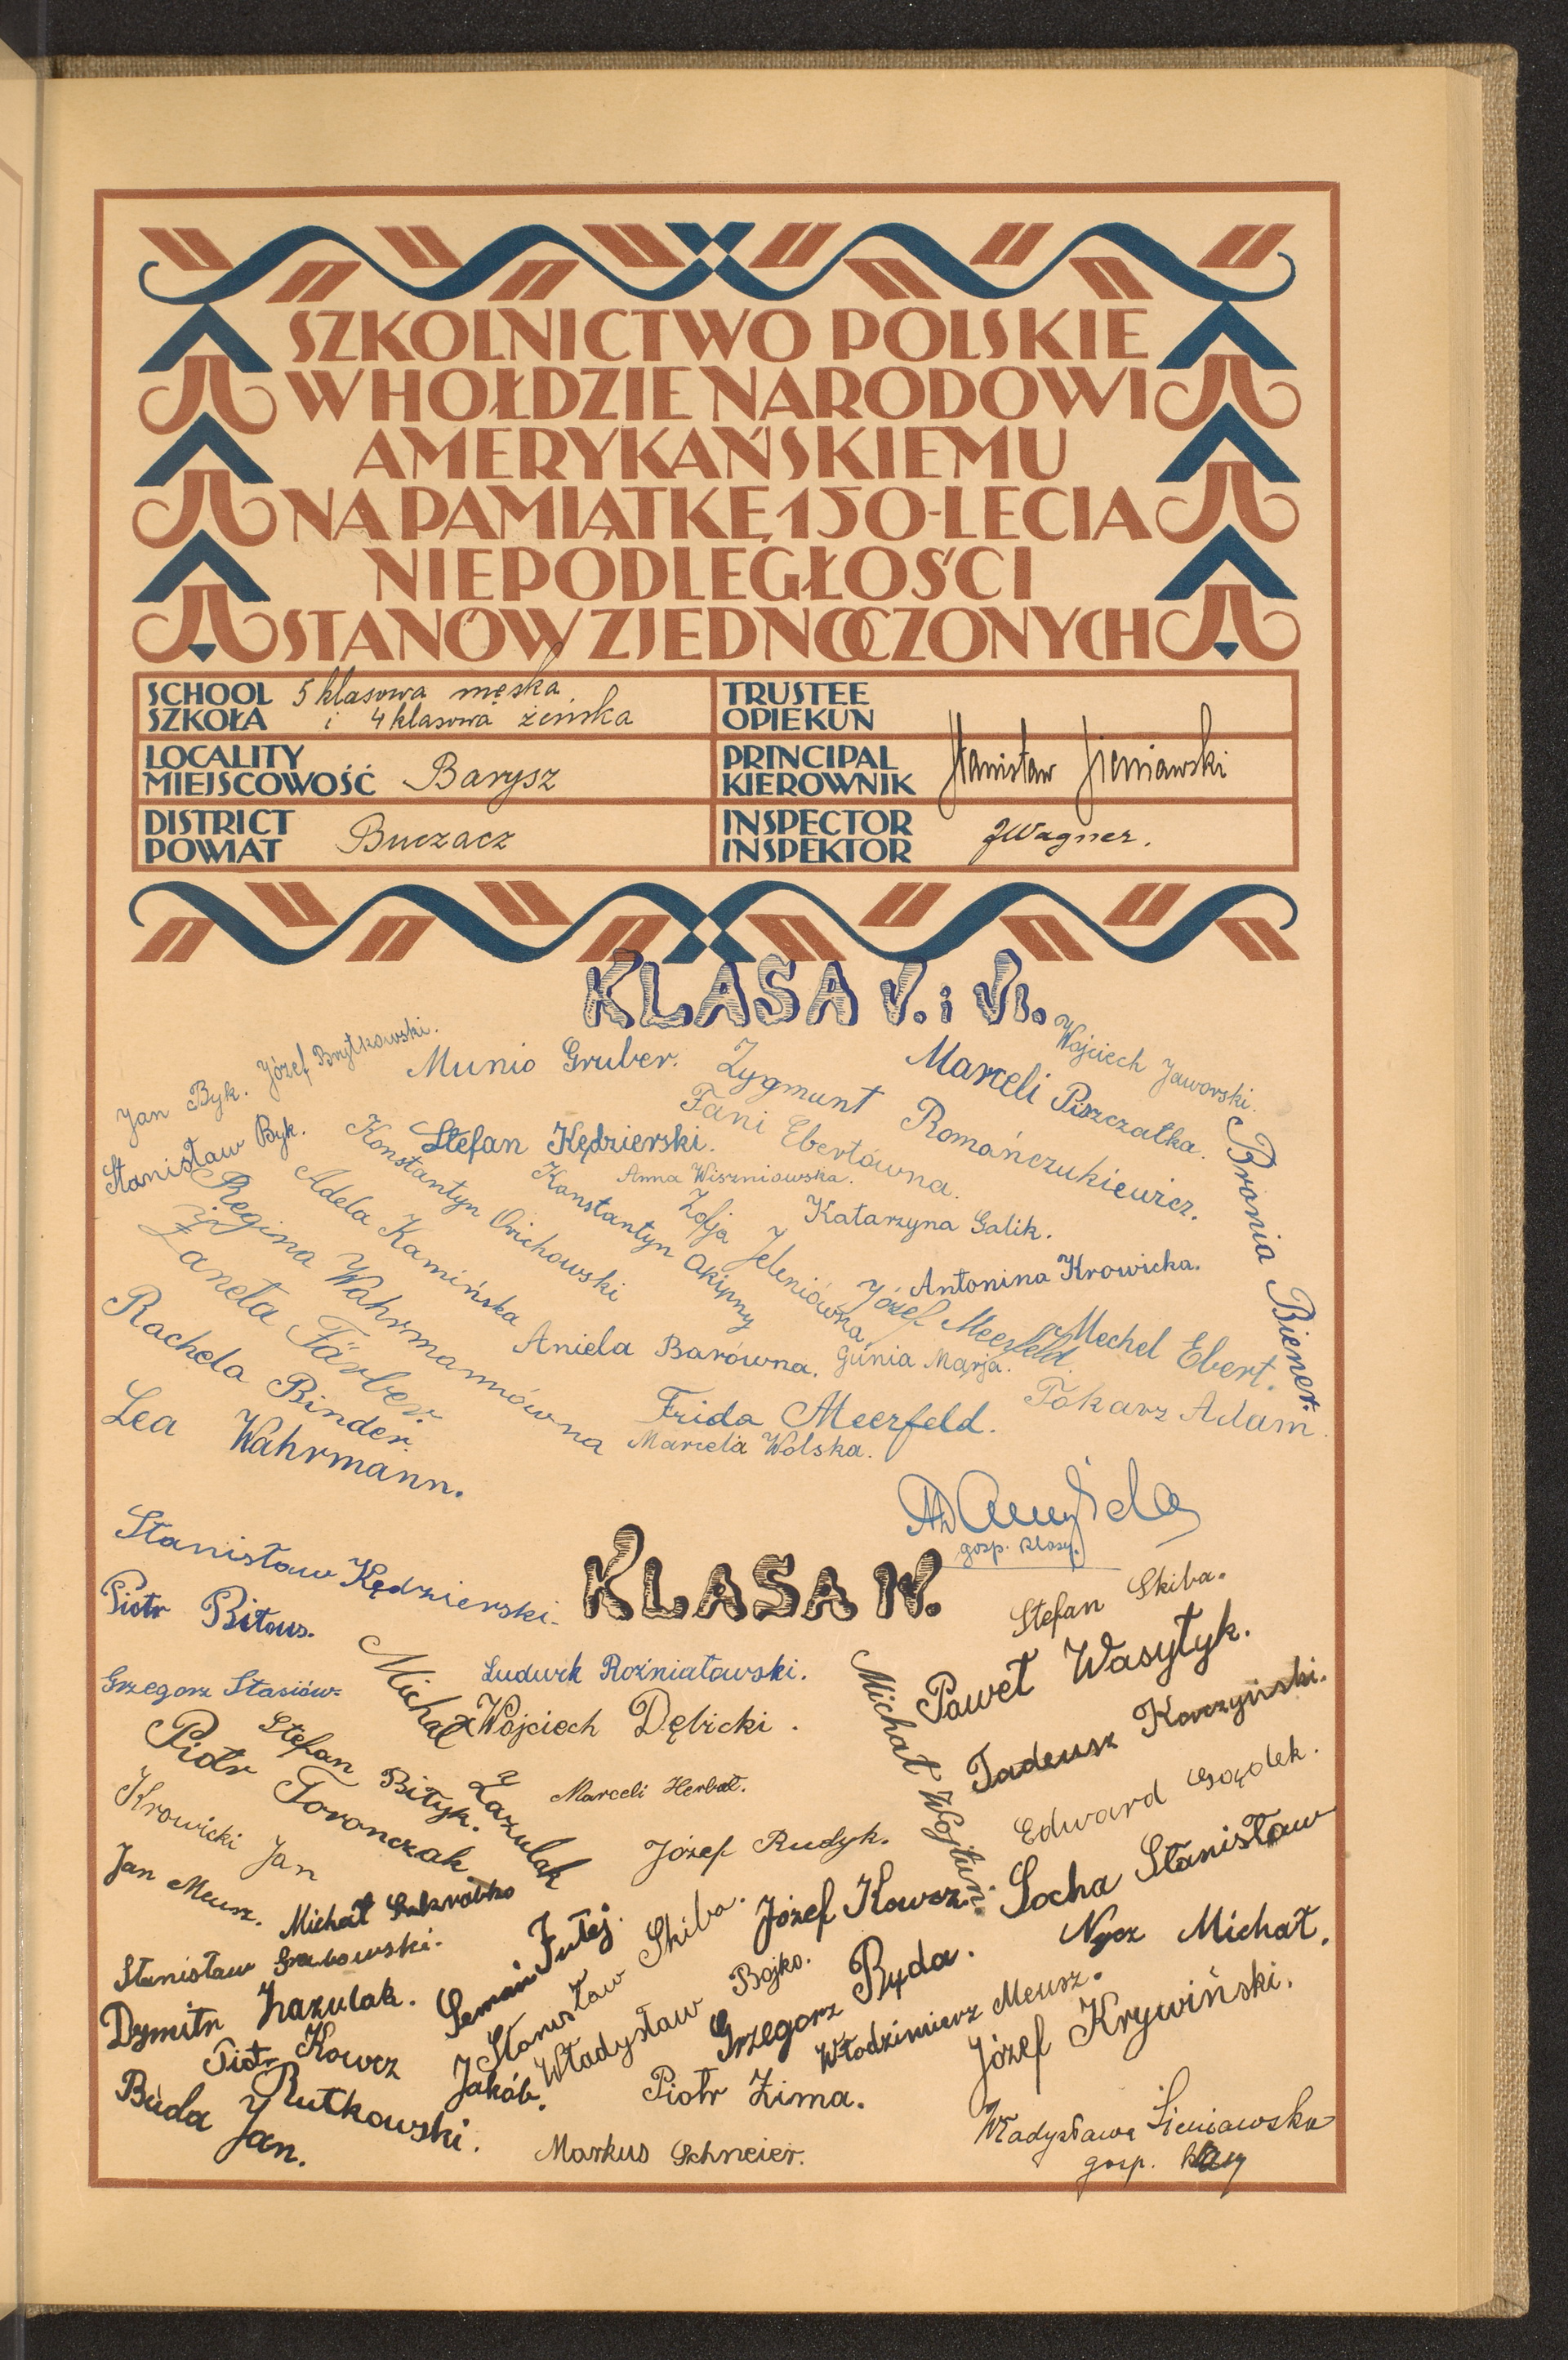 SZKOLNICTWO POLSKIE
W HOŁDZIE NARODOWI
AMERYKAŃSKIEMU
NA PAMIĄTKĘ 150-LECIA
NIEPODLEGŁOŚCI
STANÓW ZJEDNOCZONYCH
SCHOOL
SZKOŁA
5 klasowa męska
i 4 klasowa żeńska
TRUSTEE
OPIEKUN
LOCALITY
MIEJSCOWOŚĆ
Barysz
PRINCIPAL
KIEROWNIK
Stanisław Sieniawski
DISTRICT
POWIAT
Buczacz
INSPECTOR
INSPEKTOR
JWagner.
KLASA V. i VI.
Jan Byk.
Józef Brytkowski.
Munio Gruber.
Zygmunt Romańczukiewicz.
Marceli Piszczatka.
Wojciech Jaworski.
Stanisław Byk.
Konstantyn Orichowski
Stefan Kędzierski.
Fani Ebertówna.
Bronia Biener.
Regina Wahrmannówna
Adela Kamińska
Konstantyn Okipny
Anna Wiszniowska.
Zofja Jeleniówna.
Katarzyna Galik.
Żaneta Färber.
Antonina Krowicka.
Józef Meerfeld.
Mechel Ebert.
Rachela Binder.
Aniela Barówna.
Gunia Marja.
Lea Wahrmann.
Frida Meerfeld.
Tokarz Adam.
Marcela Wolska.
gosp. klasy.
KLASA IV.
Stanisław Kędzierski.
Piotr Bitous.
Stefan Skiba.
Michał Zazulak
Ludwik Rożniatowski.
Michał Wojtun.
Paweł Wasytyk.
Grzegorz Stasiów.
Wojciech Dębicki.
Tadeusz Korczyński.
Piotr Toronczak
Stefan Bityk.
Marceli Herbut.
Edward Gozdek.
Krowicki Jan
Józef Rudyk.
Jan Meusz.
Michał
Józef Kowcz.
Socha Stanisław
Stanisław Grabowski.
Semań Futej.
Stanisław Skiba.
Nycz Michał.
Dymitr Zazulak.
Władysław Bojko.
Grzegorz Ryda.
Włodzimierz Meusz.
Józef Krywiński.
Piotr Kowcz
Jakób.
Rutkowski.
Piotr Zima.
Buda Jan.
Markus Schneier.
Władysława Sieniawska
gosp. klasy